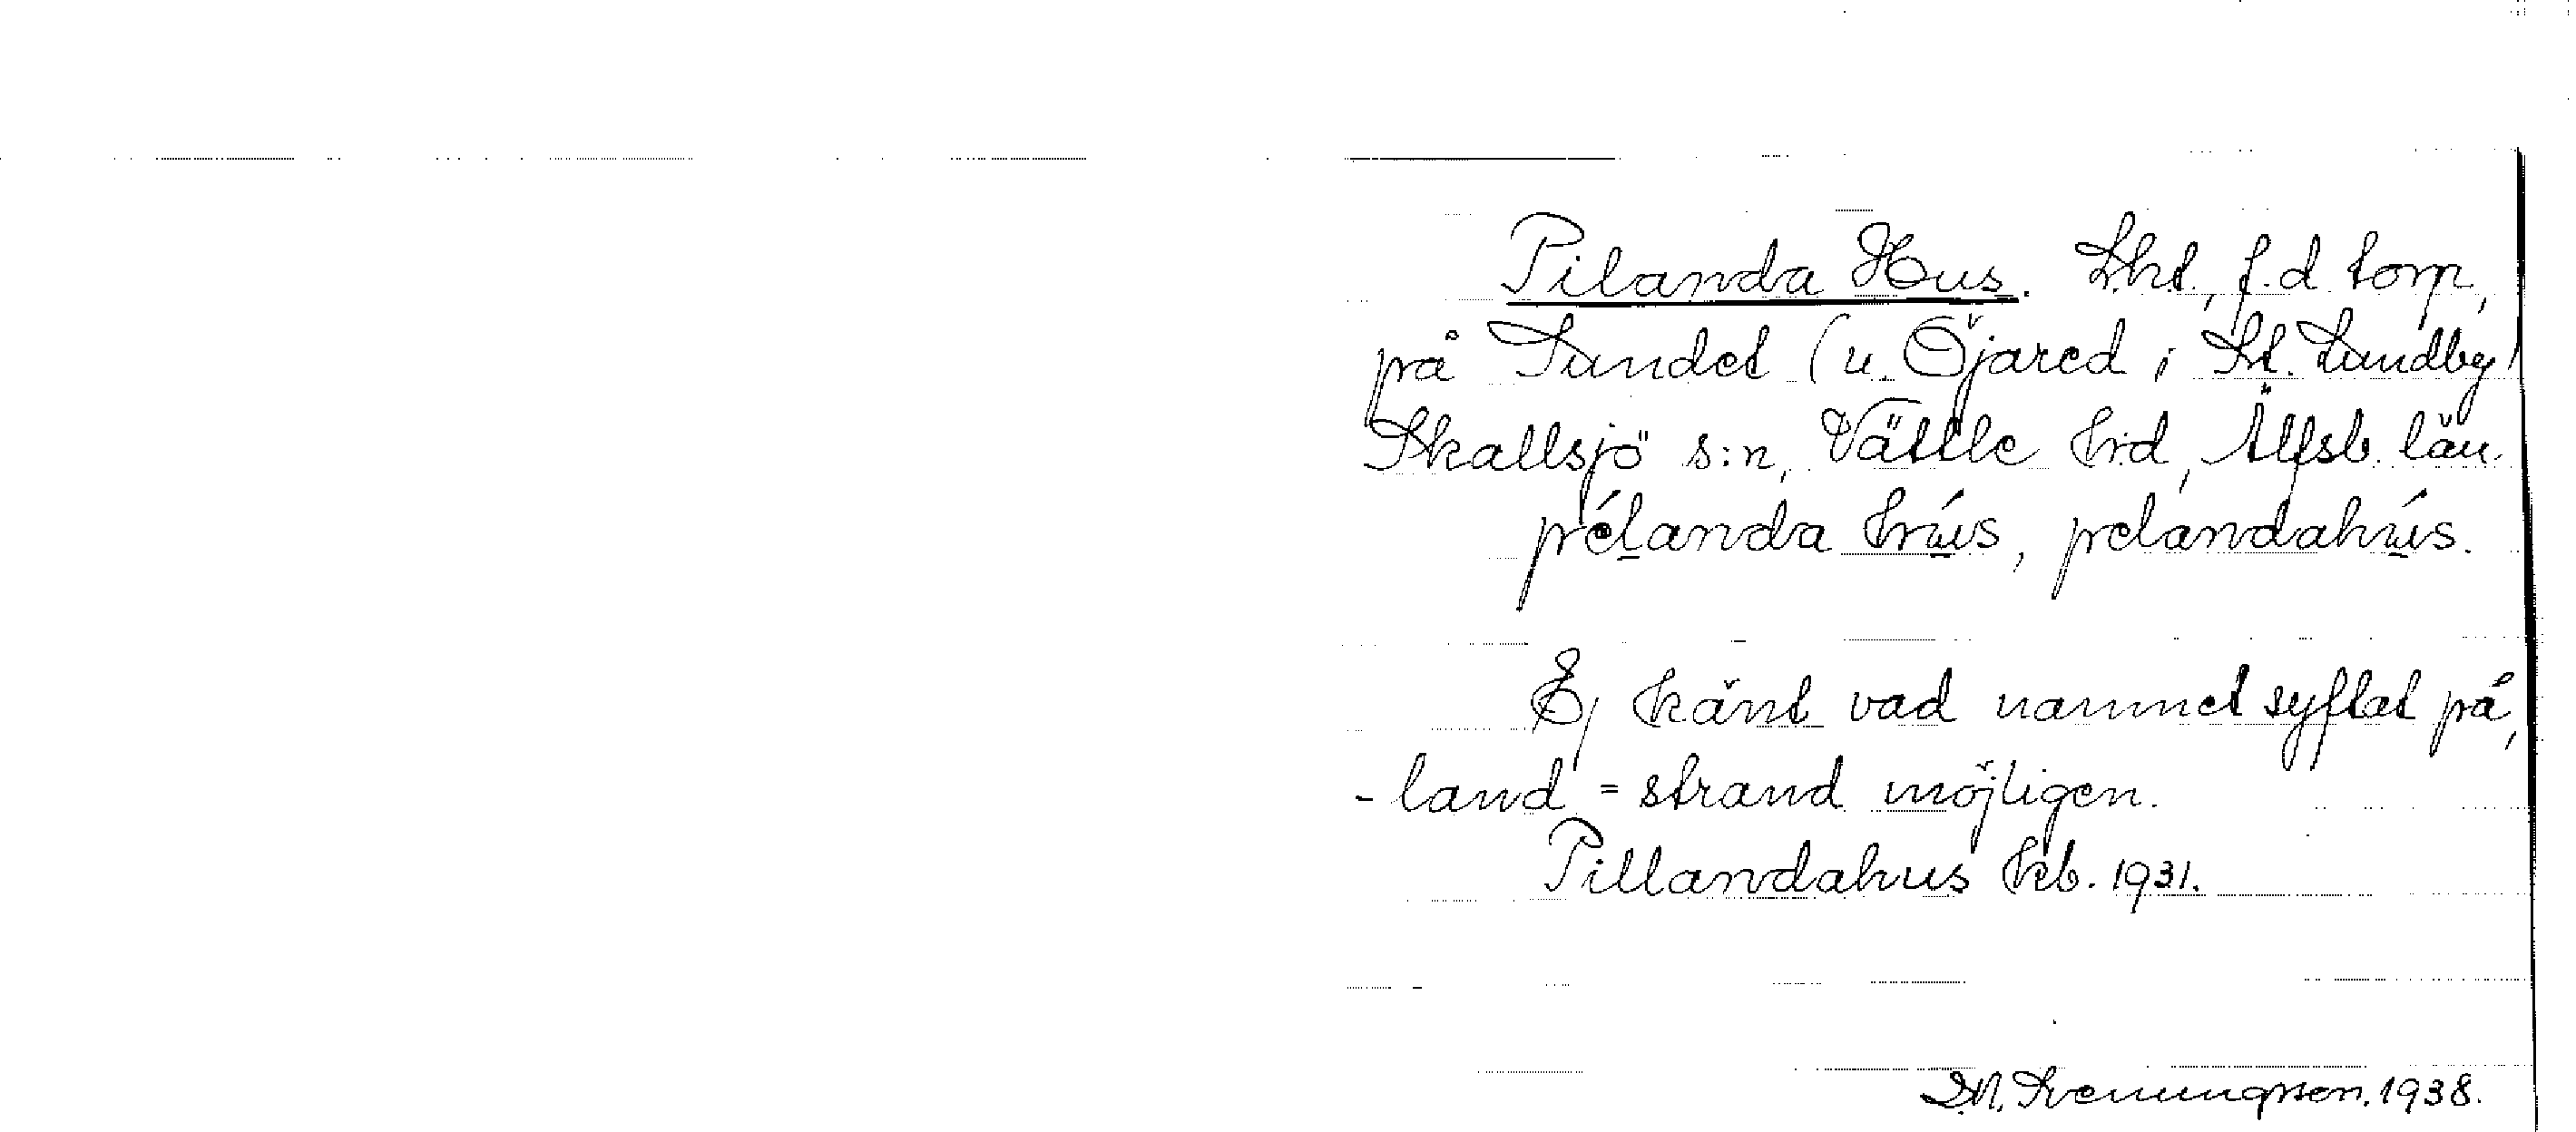 Pilanda Hus. Lht., f.d. torp,
på Sundet (u. Öjared i St. Lundby)
Skallsjö s:n, Vättle hd, Älfsb. län.
pélanda hús, pelandahús.
Ej känt vad namnet syftat på,
-land = strand möjligen.
Pillandahus kb. 1931.
D.N. Svenungsson. 1938.